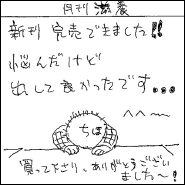 月刊 滋養
新刊 完売できました!!
悩んだけど
出して良かったです...
ちほ
買って下さり、ありがとうござい
ました〜!